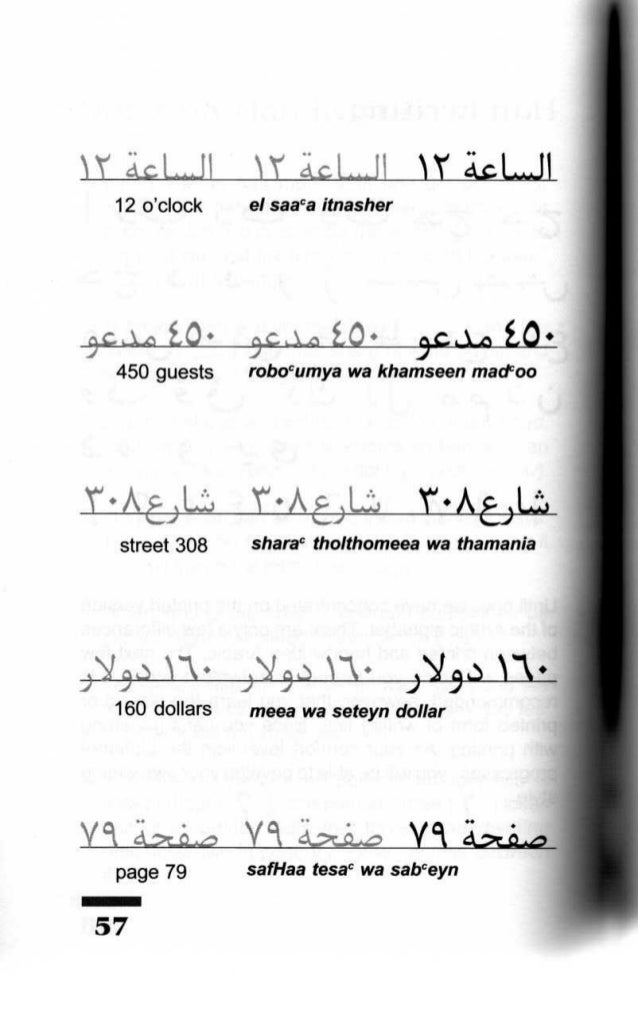 الساعة ١٢ الساعة ١٢ الساعة ١٢
12 o'clock el saaᶜa itnasher
٤٥٠ مدعو ٤٥٠ مدعو ٤٥٠ مدعو
450 guests roboᶜumya wa khamseen madᶜoo
شارع ٣٠٨ شارع ٣٠٨ شارع ٣٠٨
street 308 sharaᶜ tholthomeea wa thamania
١٦٠ دولار ١٦٠ دولار ١٦٠ دولار
160 dollars meea wa seteyn dollar
صفحة ٧٩ صفحة ٧٩ صفحة ٧٩
page 79 safHaa tesaᶜ wa sabᶜeyn
57